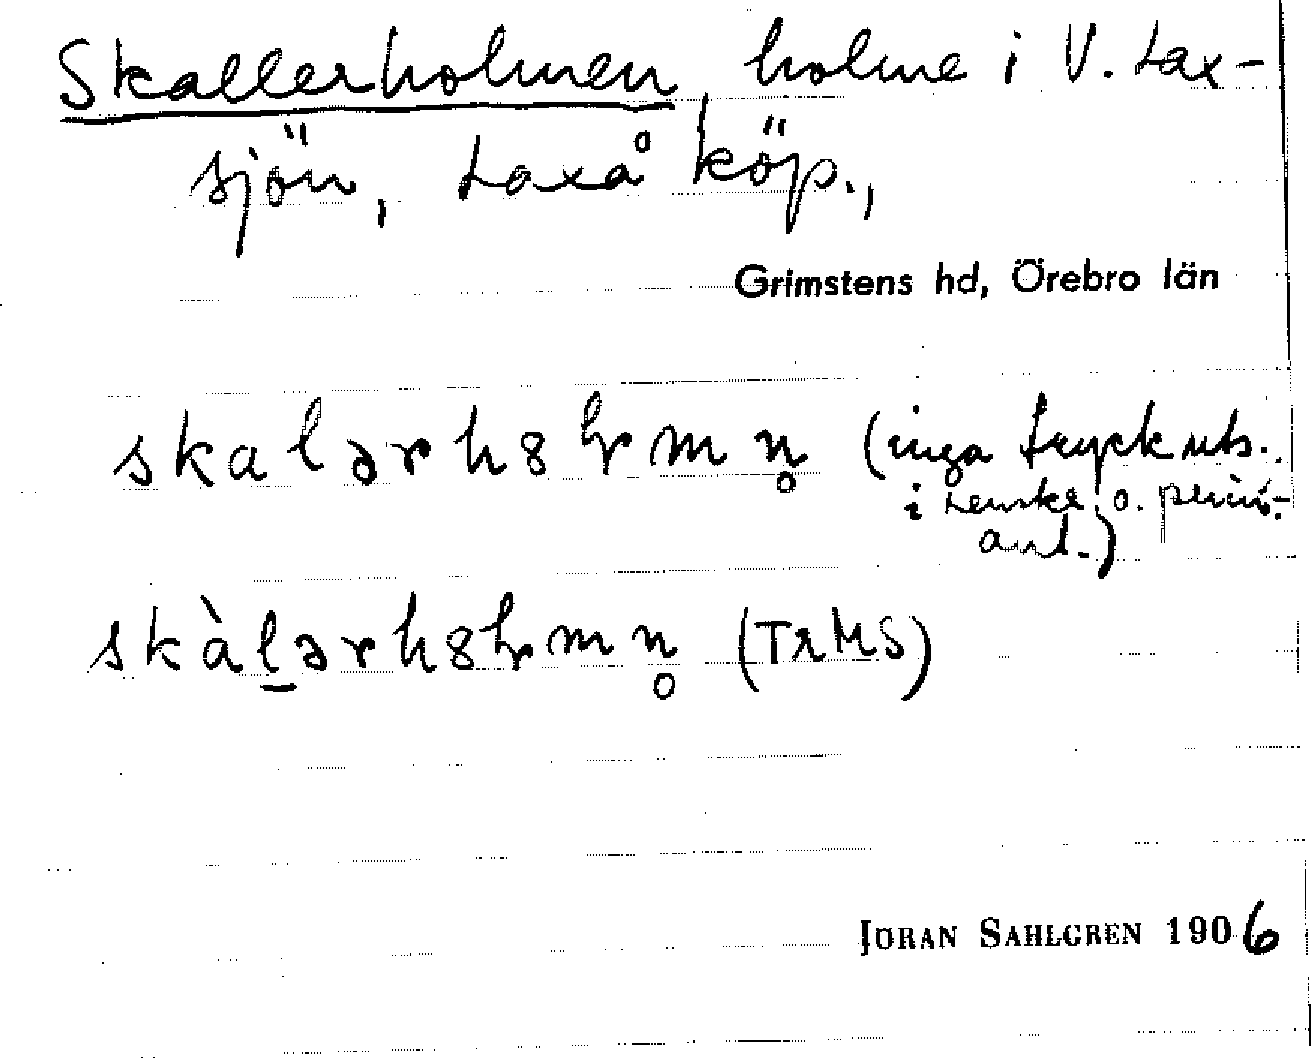 Skallerholmen holme i V. Lax-
sjön, Laxå köp.,
Grimstens hd, Örebro län
skalərh8ɭmn̥ (inga tryckuts.
i
o.
ant.)
skàl̠ərh8ɭmn̥ (TrMS)
JÖRAN SAHLGREN 1906